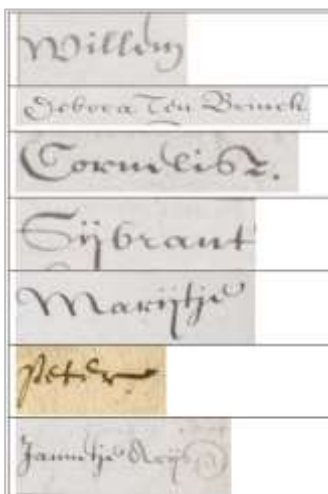 Willem
Debora Ten Brinck
Cornelisz.
Sijbrant
Marijtje
Peter
Jannetje Arijs